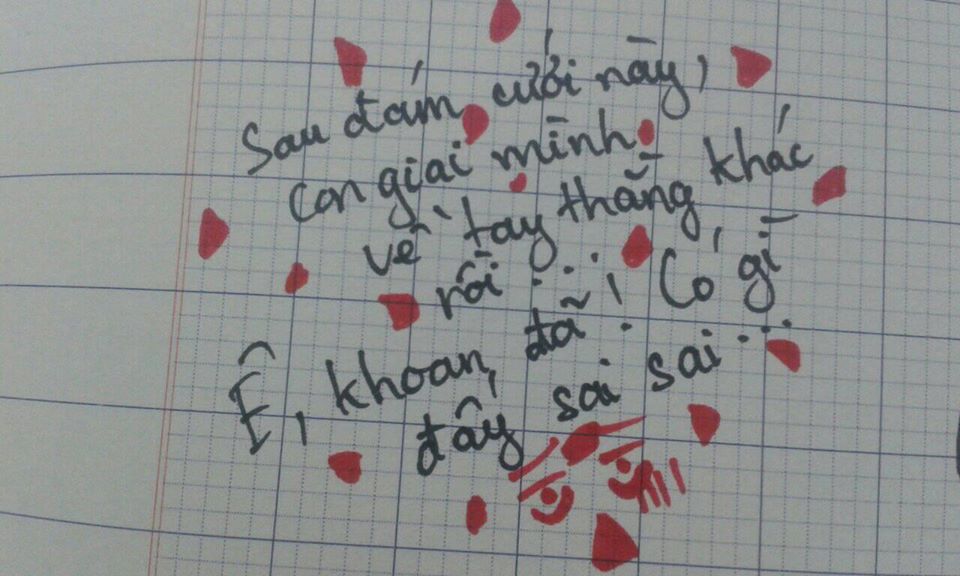 Sau đám cưới này,
con giai mình
về tay thằng khác
rồi...! Có gì
Ê, khoan, đã!
đấy sai sai...